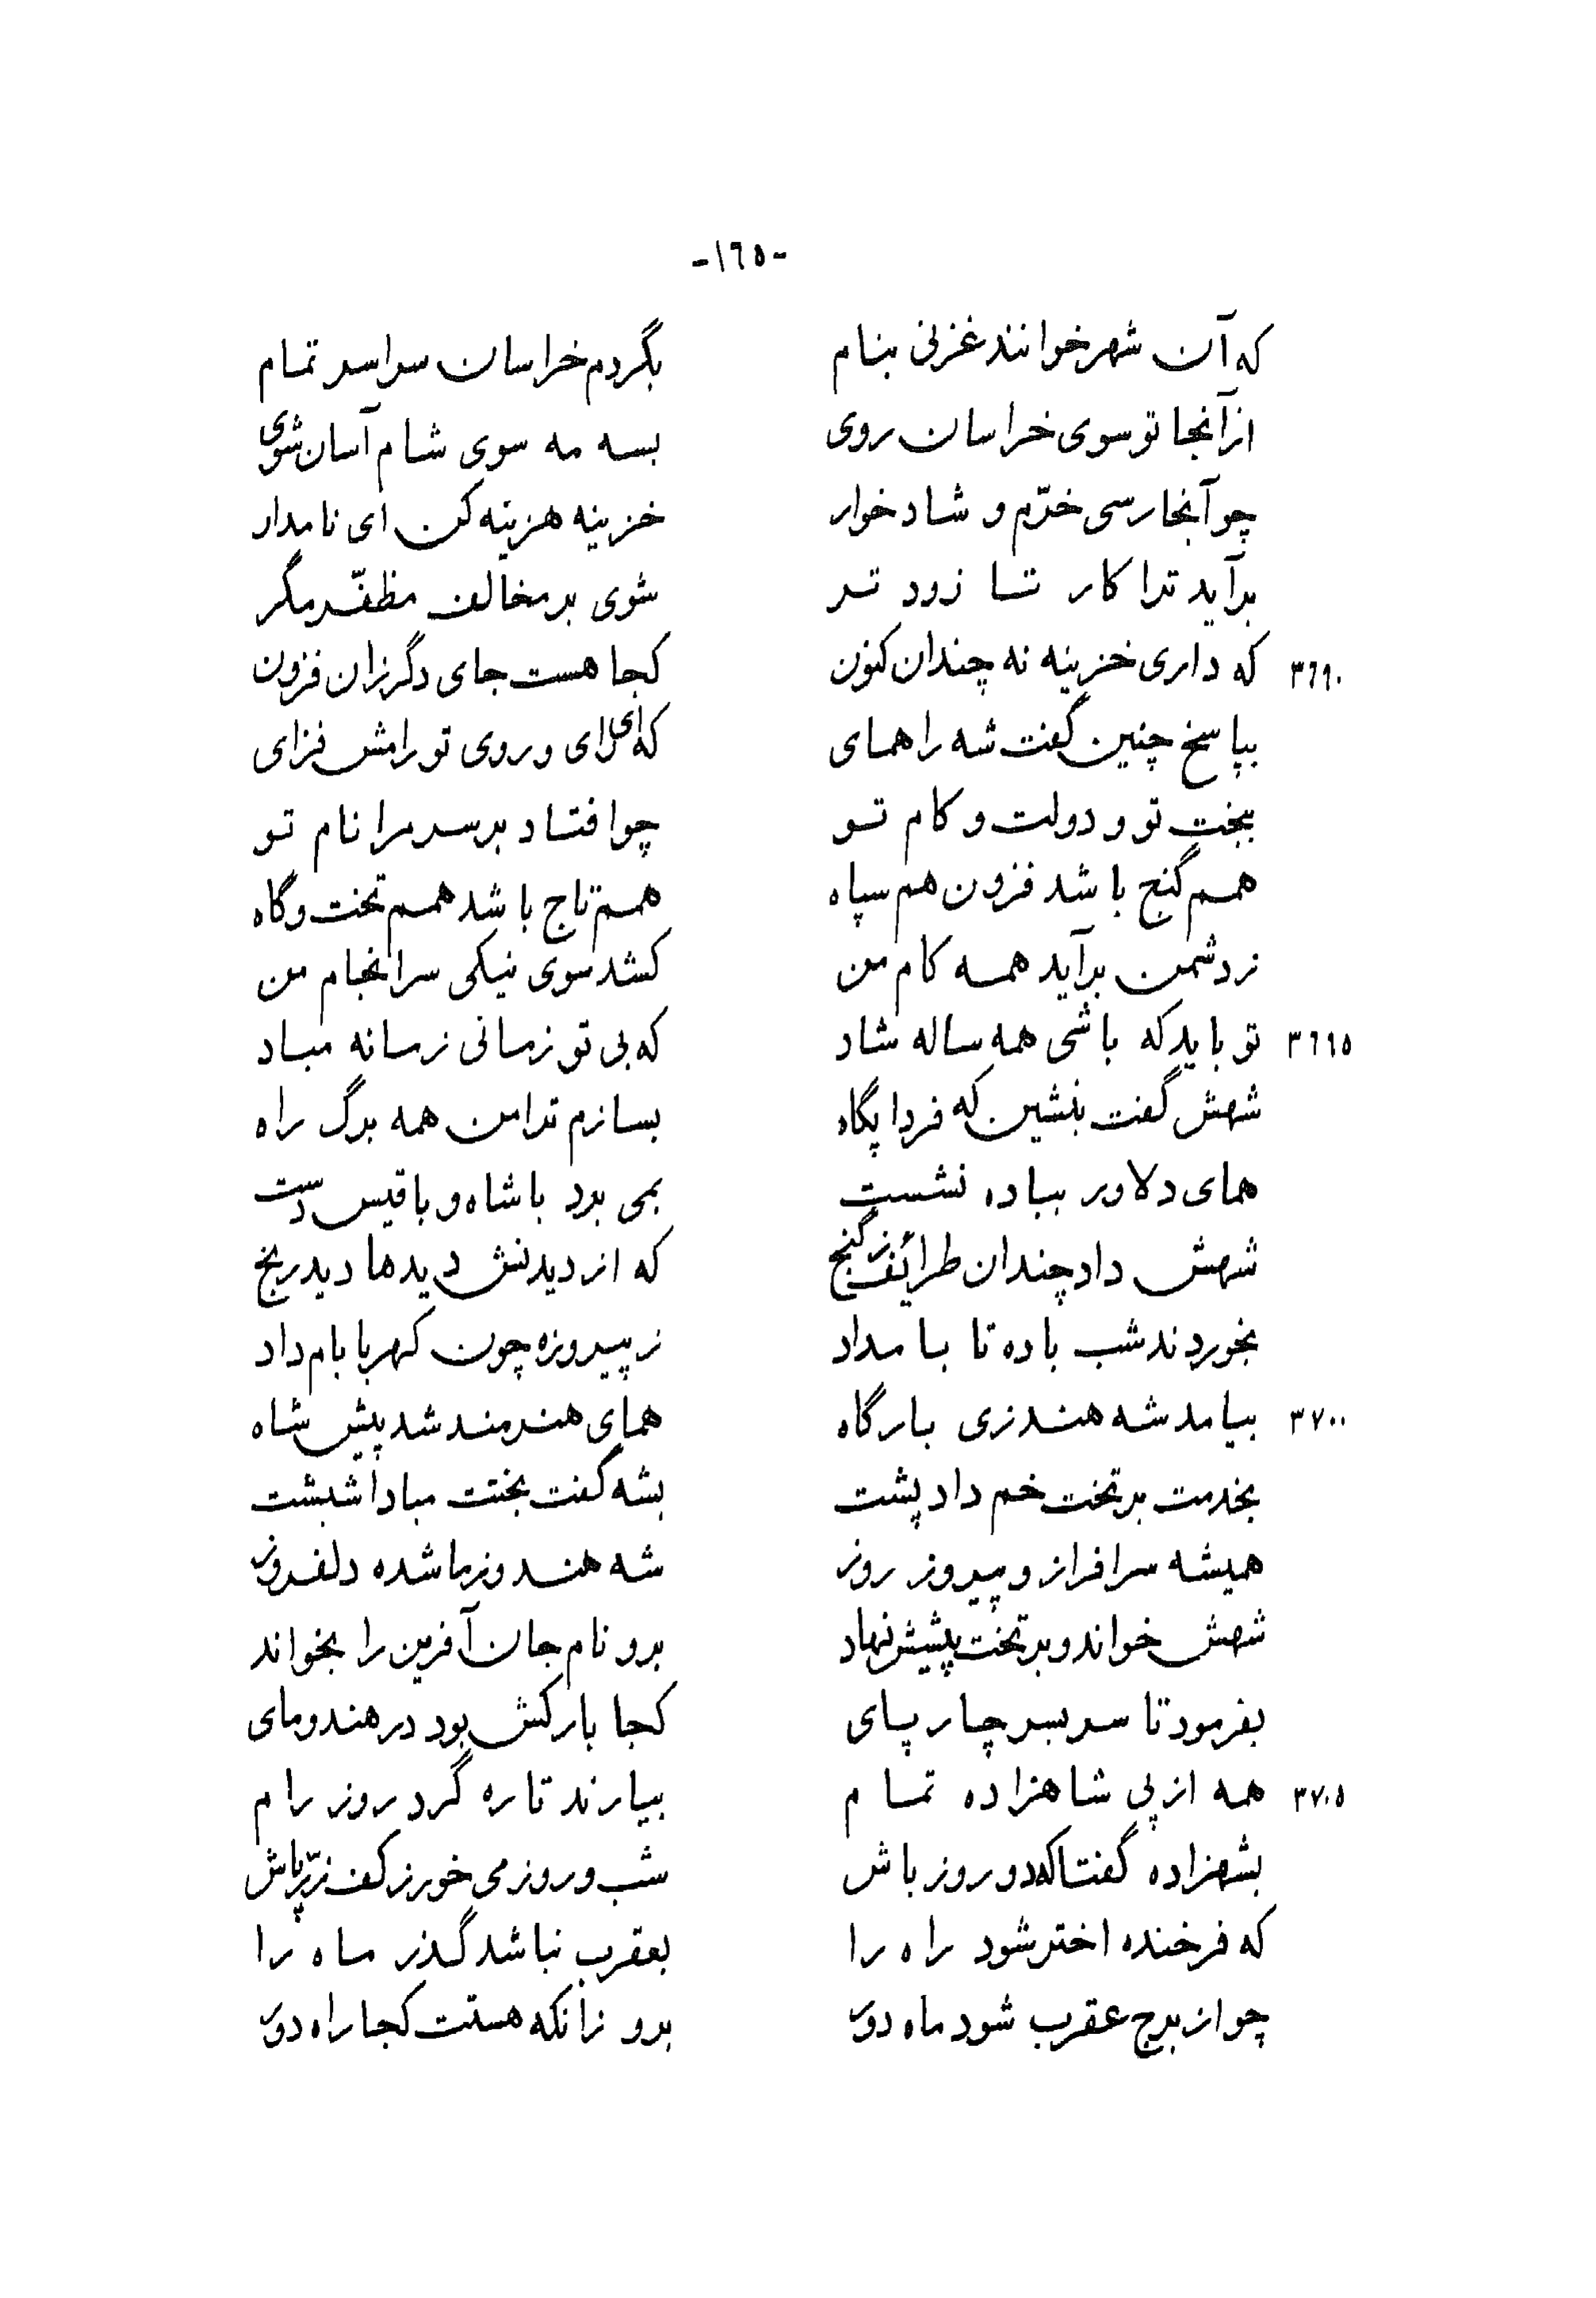 -١٦٥-
که آن شهر خوانند غزنی بنام بگردم خراسان سراسر تمام
از آنجا تو سوی خراسان روی بسه مه سوی شام آسان شوی
چو آنجا رسی خرّم و شاد خوار خزینه هزینه کن ای نامدار
برآید ترا کار تا زود تر شوی بر مخالف مظفّر مگر
٣٦٩٠ که داری خزینه نه چندان کنون کجا هست جای دگر زان فزون
بپاسخ چنین گفت شه را همای که ای رای و روی تو رامش فزای
ببخت تو و دولت و کام تو چو افتاد بر سر مرا نام تو
هم گنج باشد فزون هم سپاه هم تاج باشد هم تخت و گاه
ز دشمن برآید همه کام من کشد سوی نیکی سرانجام من
٣٦٩٥ تو باید که باشی همه ساله شاد که بی تو زمانی زمانه مباد
شهش گفت بنشین که فردا پگاه بسازم ترا من همه برگ راه
همای دلاور بباده نشست بمی برد با شاه و با قیس دست
شهش داد چندان طرائف ز گنج که از دیدنش دیدها دید رنج
بخوردند شب باده تا بامداد ز پیروزه چون کهربا بام داد
٣٧٠٠ بیامد شه هند زی بارگاه همای هنرمند شد پیش شاه
بخدمت بر تخت خم داد پشت بشه گفت بختت مبادا شبشت
همیشه سرافراز و پیروز روز شه هند وز ما شده دلفروز
شهش خواند و بر تخت پیشش نهاد برو نام جان آفرین را بخواند
بفرمود تا سربسر چار پای کجا بارکش بود در هند و مای
٣٧٠٥ همه از پی شاهزاده تمام بیارند تا ره گرد روز رام
بشهزاده گفتا که دو روز باش شب و روز می خور ز کف زرّ پاش
که فرخنده اختر شود راه را بعقرب نباشد گذر ماه را
چو از برج عقرب شود ماه دور برو زانکه هستت کجا راه دور